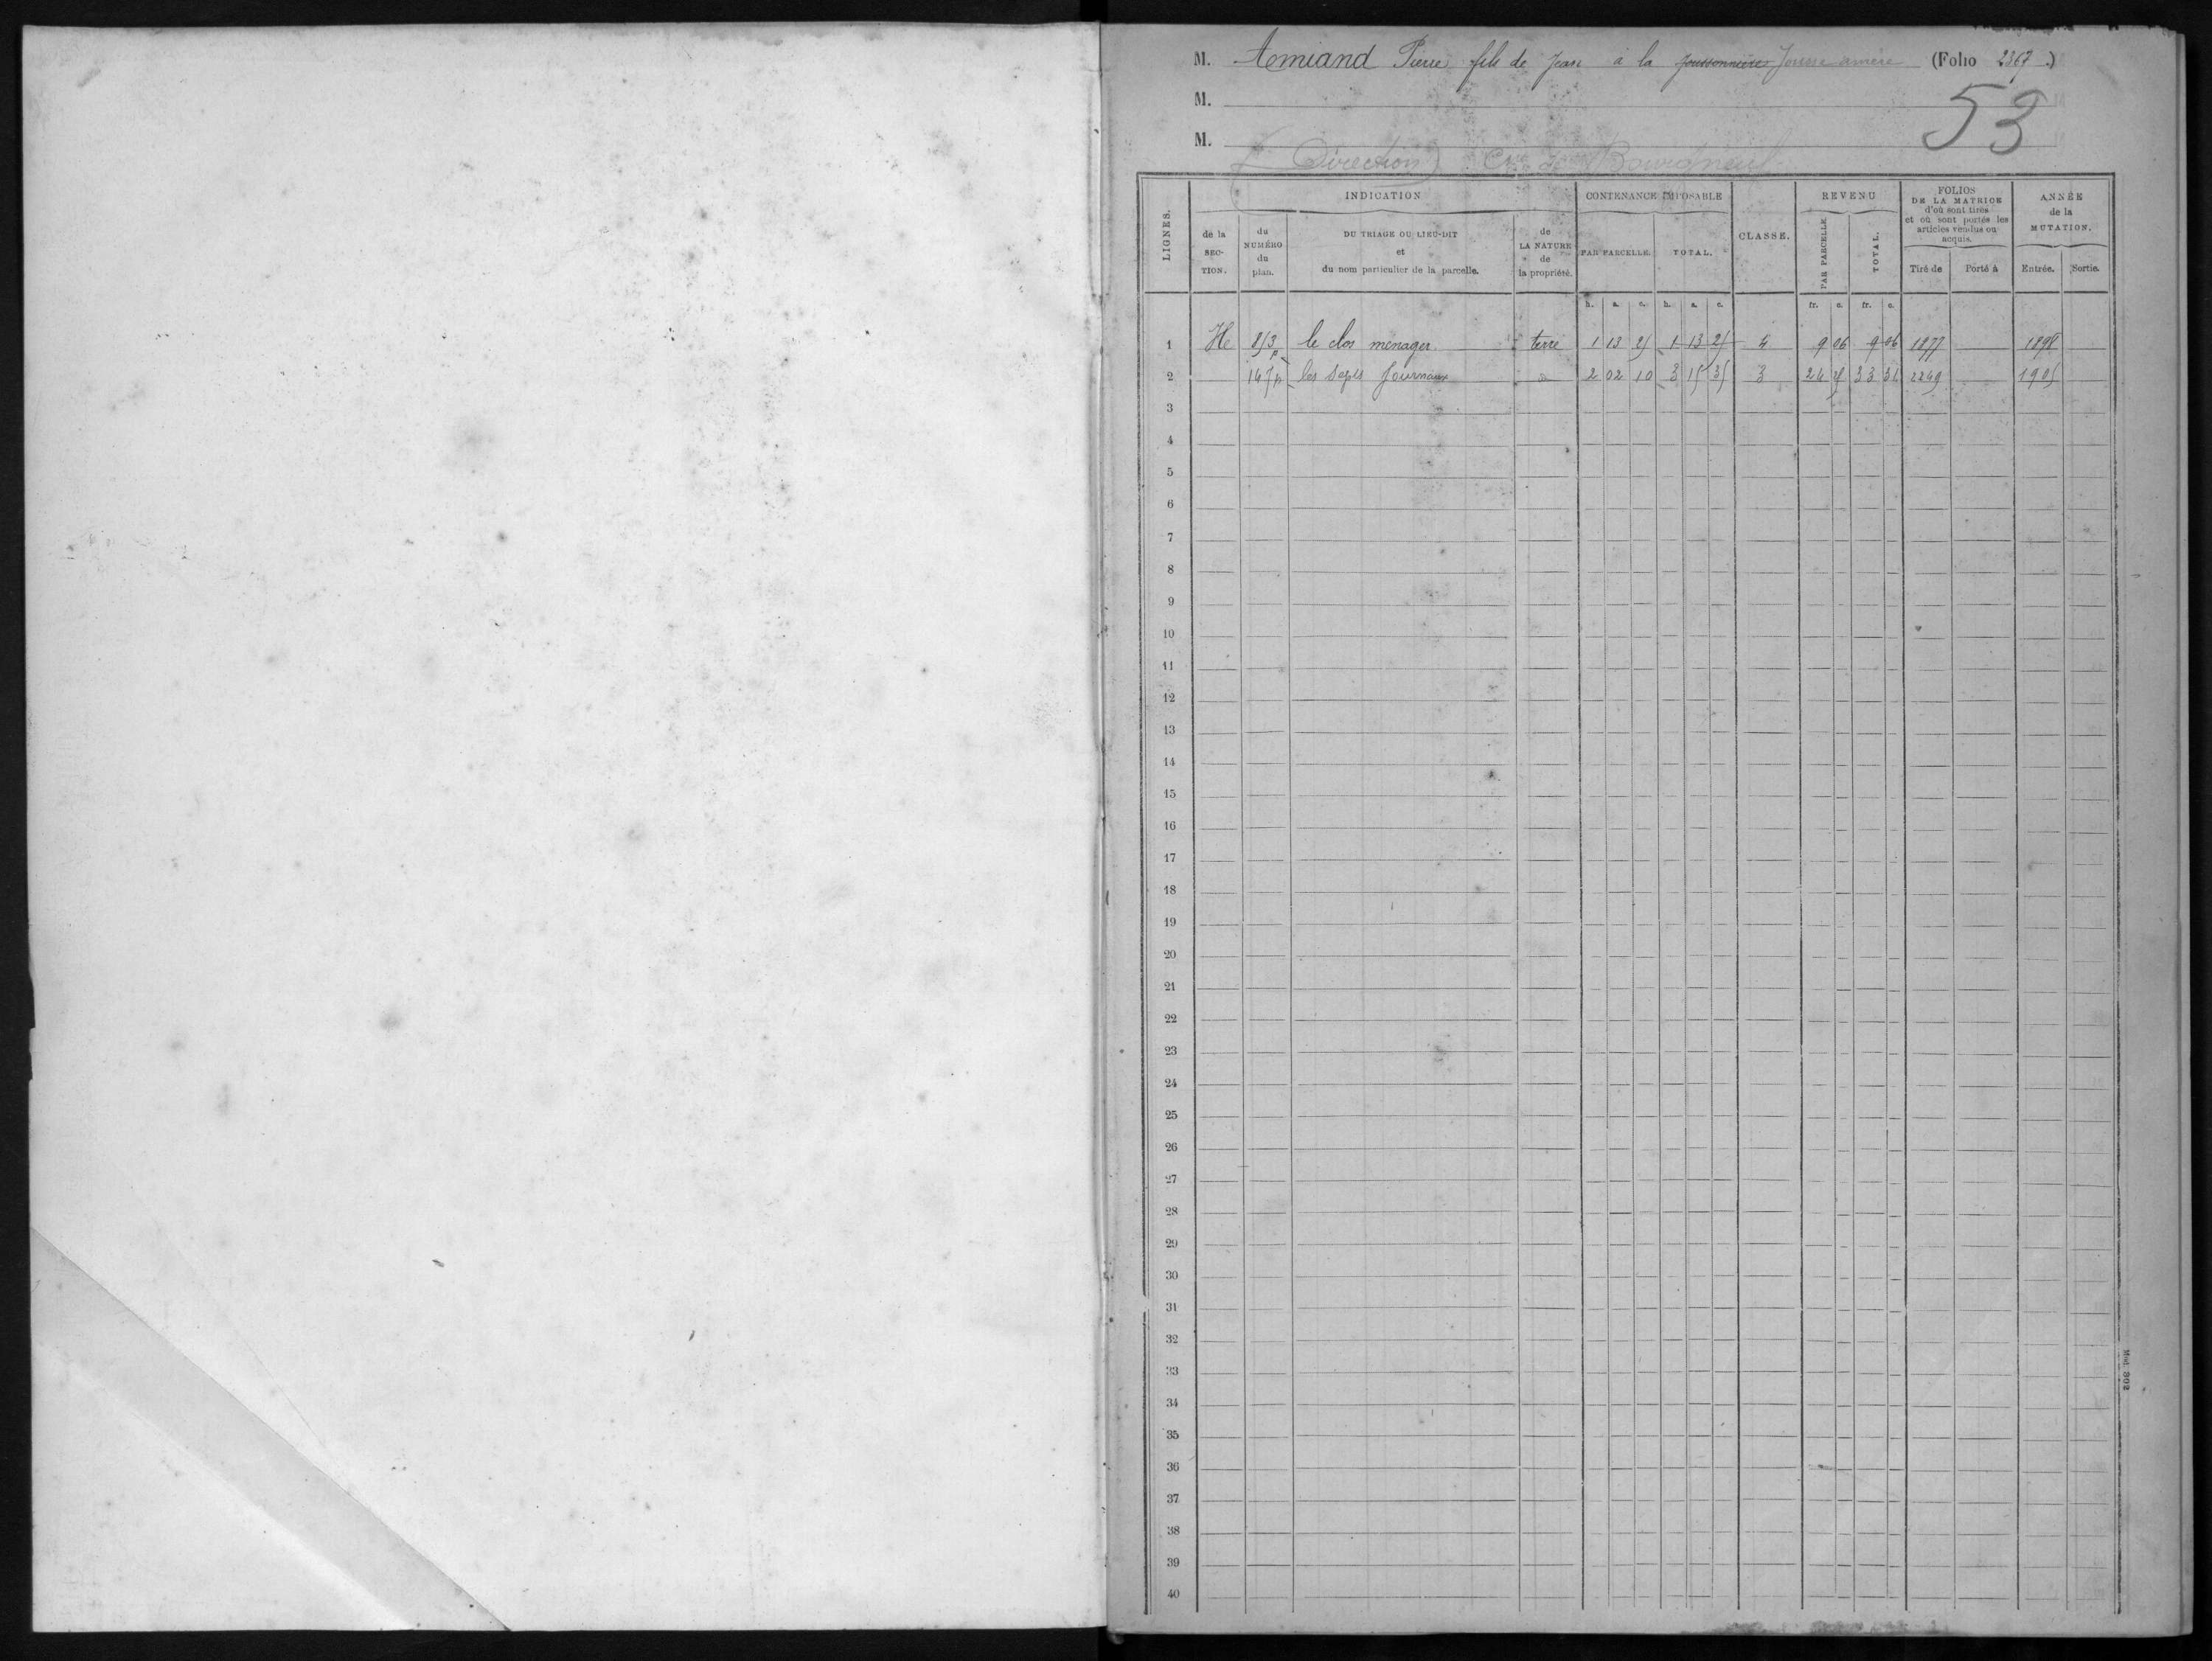 M. Amiand Pierre fils de Jean à la Joussonnières Jousse amère (Folio 2367.)
M.
53
M.
(Direction) Cne de Bourgneuf
LIGNES.
INDICATION
CONTENANCE IMPOSABLE
CLASSE.
REVENU
FOLIOS
DE LA MATRICE
d'où sont tirés
et où sont portés les
articles vendus ou
acquis.
ANNÉE
de la
MUTATION.
de la
SEC-
TION.
du
NUMÉRO
du
plan.
DU TRIAGE OU LIEU-DIT
et
du nom particulier de la parcelle.
de
LA NATURE
de
la propriété.
PAR PARCELLE.
TOTAL.
PAR PARCELLE.
TOTAL.
Tiré de
Porté à
Entrée.
Sortie.
h. a. c. h. a. c. fr. c. fr. c.
1 He 853p le clos ménager terre 1 13 25 1 13 25 4 9 06 9 06 1877 1898
2 147p les Septs Journaux d 2 02 10 3 15 35 3 24 25 33 31 2249 1905
3
4
5
6
7
8
9
10
11
12
13
14
15
16
17
18
19
20
21
22
23
24
25
26
27
28
29
30
31
32
33
34
35
36
37
38
39
40
Mod. 302